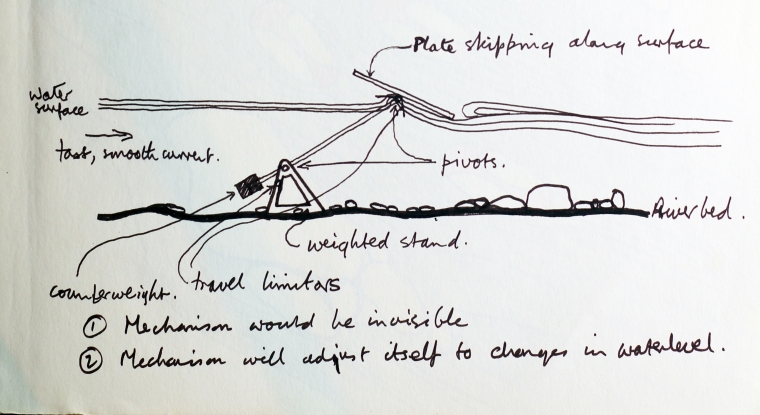 Plate skipping along surface
water
surface
fast, smooth current.
pivots.
River bed.
weighted stand.
travel limitors
counterweight.
① Mechanism would be invisible
② Mechanism will adjust itself to changes in waterlevel.